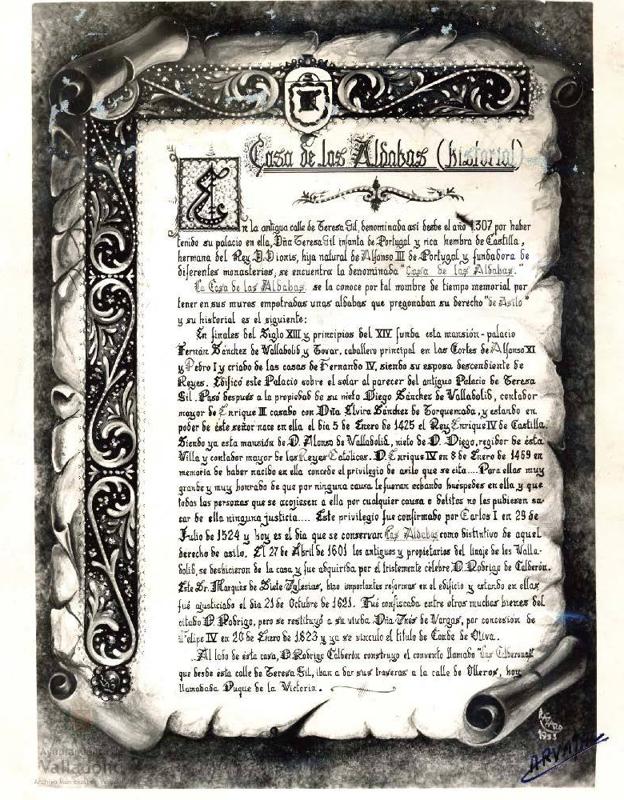 Casa de las Aldabas (historial)
En la antigua calle de Teresa Gil, denominada así desde el año 1.307 por haber
tenido su palacio en ella, Dña Teresa Gil infanta de Portugal y rica hembra de Castilla,
hermana del Rey D. Dionis, hija natural de Alfonso III de Portugal y fundadora de
diferentes monasterios, se encuentra la denominada "Casa de las Aldabas."
La Casa de las Aldabas se la conoce por tal nombre de tiempo memorial por
tener en sus muros empotradas unas aldabas que pregonaban su derecho "de Asilo"
y su historial es el siguiente:
En finales del Siglo XIII y principios del XIV funda esta mansión-palacio
Fernán Sánchez de Valladolid y Tovar, caballero principal en las Cortes de Alfonso XI
y Pedro I y criado de las casas de Fernando IV, siendo su esposa descendiente de
Reyes. Edificó este Palacio sobre el solar al parecer del antiguo Palacio de Teresa
Gil. Pasó después a la propiedad de su nieto Diego Sánchez de Valladolid, contador
mayor de Enrique II casado con Dña Elvira Sánchez de Torquemada, y estando en
poder de éste señor nace en ella el dia 5 de Enero de 1425 el Rey Enrique IV de Castilla.
Siendo ya esta mansión de D. Alonso de Valladolid, nieto de D. Diego, regidor de ésta
Villa y contador mayor de los Reyes Católicos. D. Enrique IV en 8 de Enero de 1469 en
memoria de haber nacido en ella concede el privilegio de asilo que se cita.... Para ellas muy
grande y muy honrado de que por ninguna causa le fueran echando huéspedes en ella y que
todas las personas que se acojiesen a ella por cualquier causa o delitos no las pubiesen sa-
car de ella ninguna justicia.... Este privilegio fue confirmado por Carlos I en 29 de
Julio de 1524 y hoy es el dia que se conservan las Aldabas como distintivo de aquel
derecho de asilo. El 27 de Abril de 1601 los antiguos y propietarios del linaje de los Valla-
dolid, se deshicieron de la casa y fue adquirida, por el tristemente célebre D. Rodrigo de Calderón.
Este Sr. Marqués de Siete Iglesias, hizo importantes reformas en el edificio y estando en ellas
fué ajusticiado el dia 21 de Octubre de 1621. Fué confiscada entre otros muchos bienes del
citado D. Rodrigo, pero se restituyó a su viuda Dña Inés de Vargas, por concesión de
Felipe IV en 20 de Enero de 1623 y ya se vinculo el título de Conde de Oliva.
..Al lado de ésta casa, D. Rodrigo Calderón construyo el convento llamado "Las Calderonas"
que desde ésta calle de Teresa Gil, iban a dar sus traseras a la calle de Olleros, hoy
llamabada Duque de la Victoria.
1955
ARVM
Ayuntamiento
Valladolid
Archivo Municipal